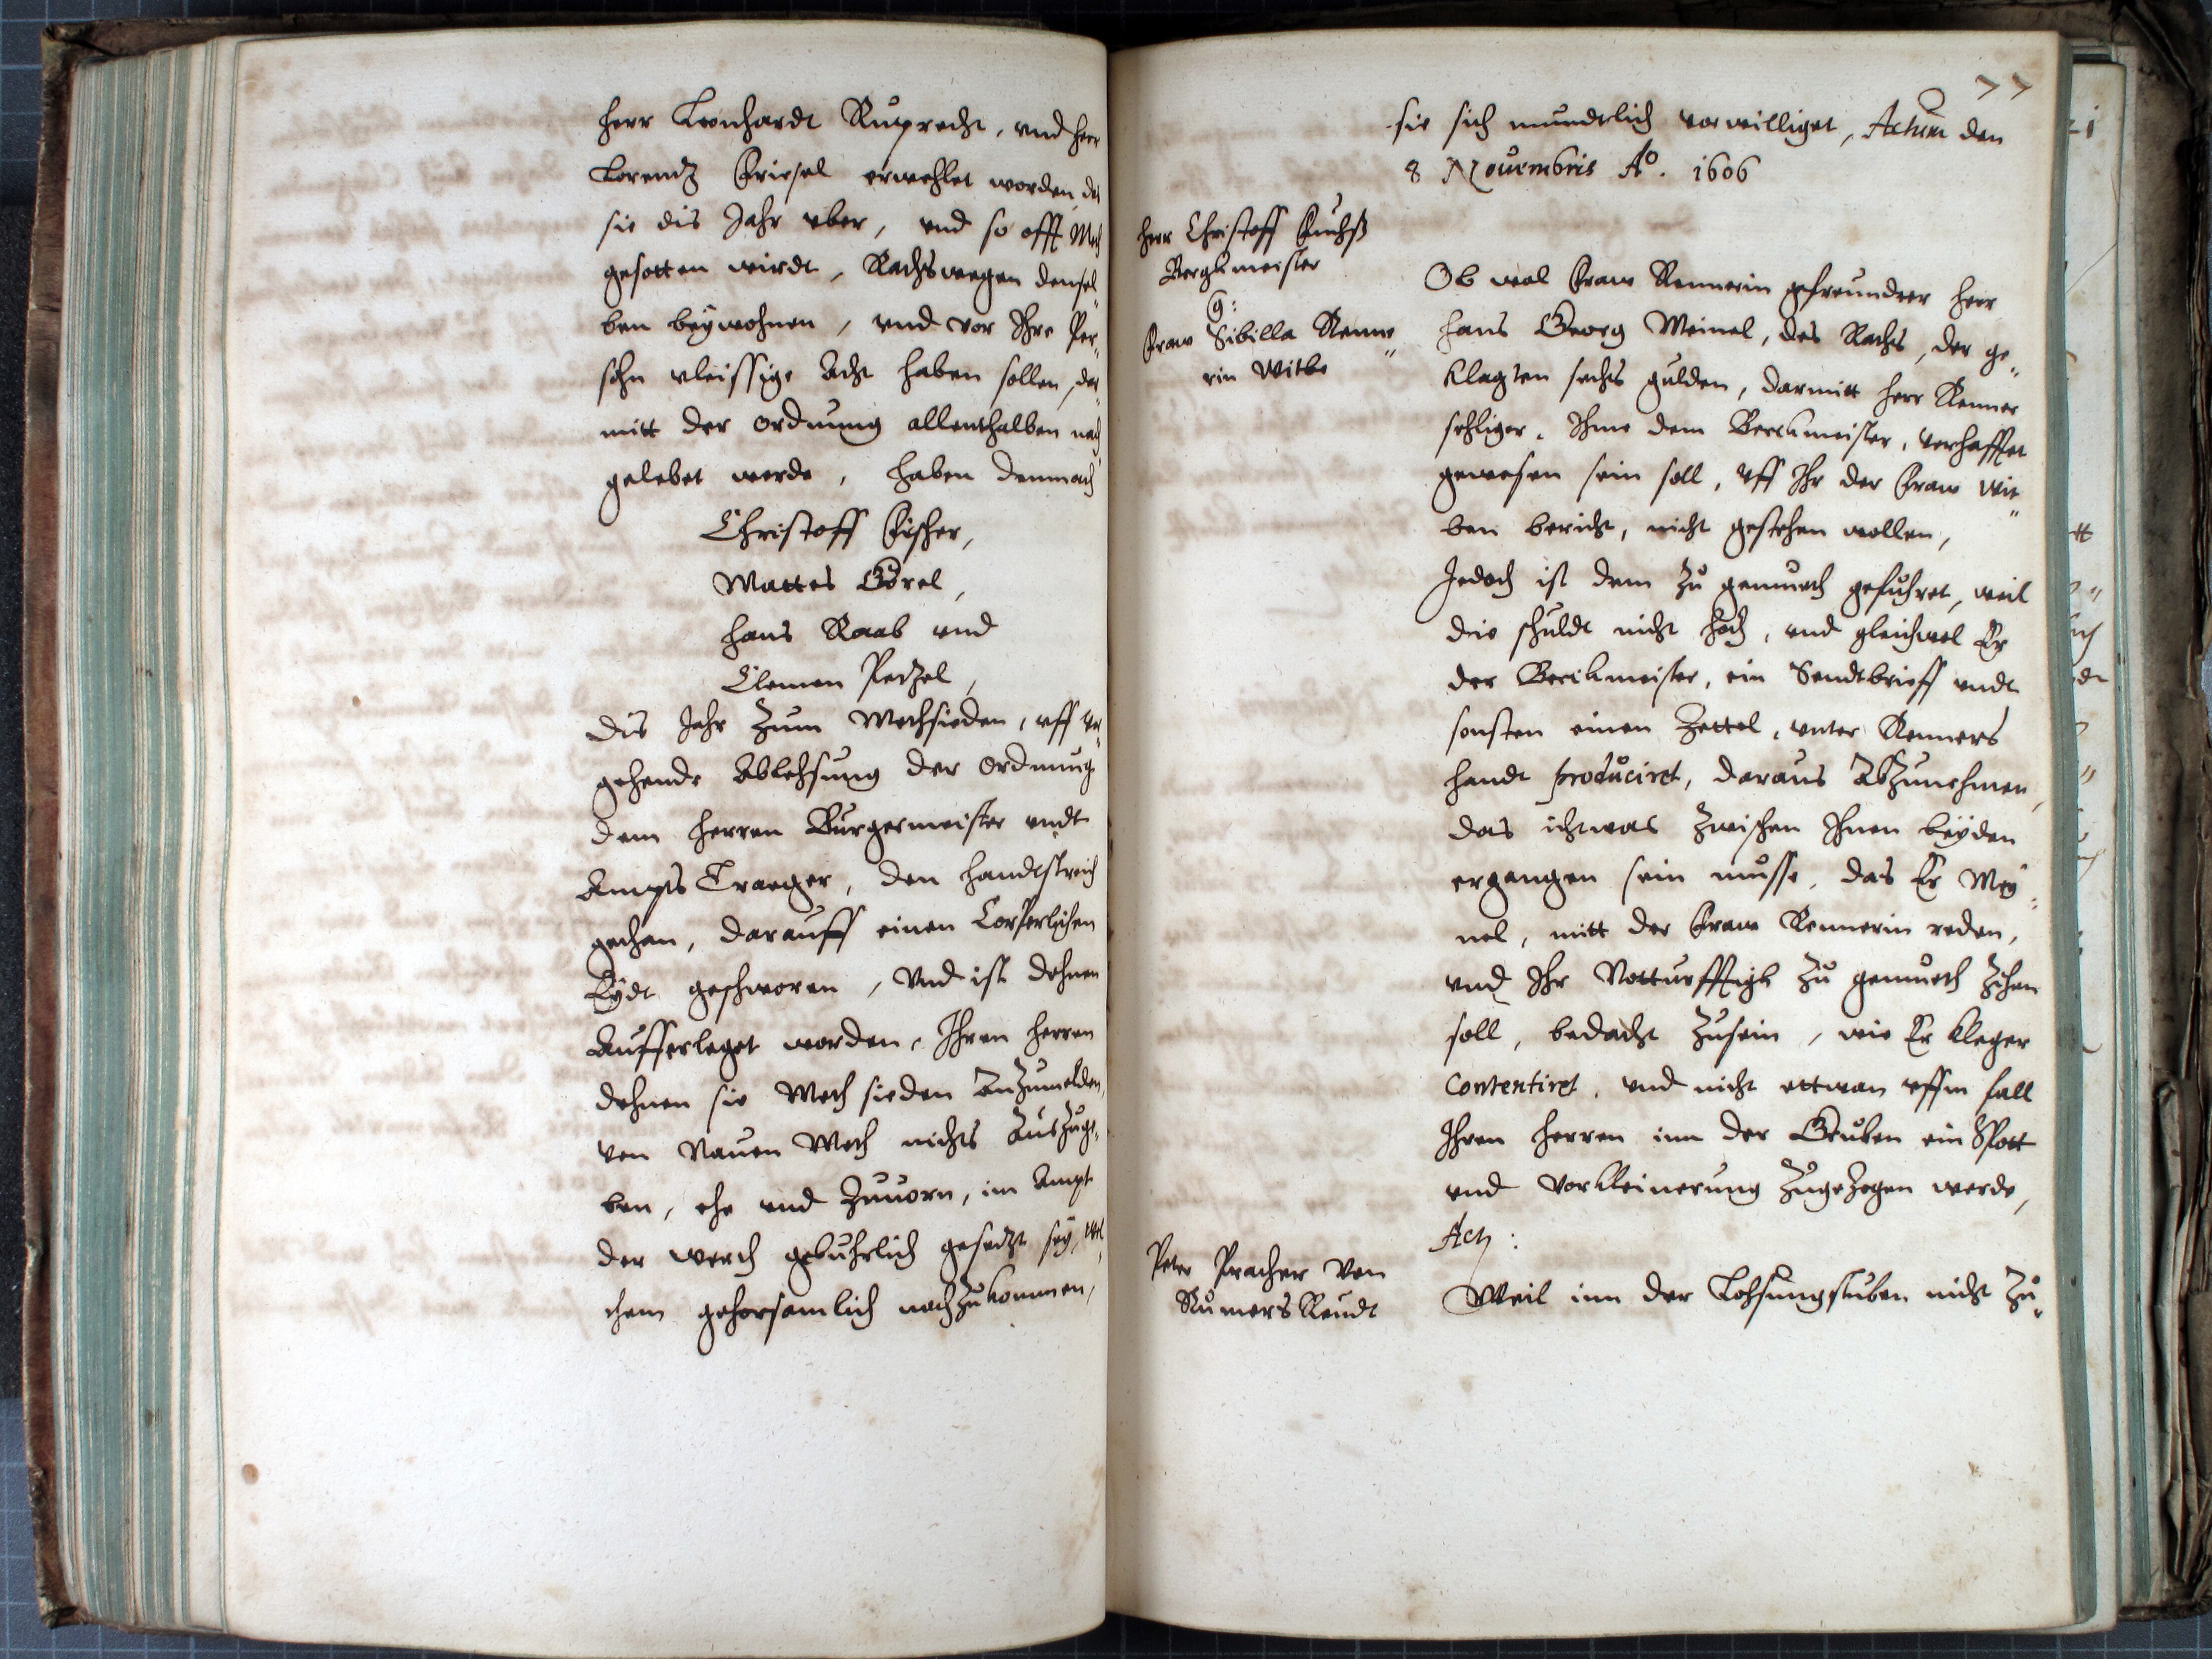 Herr Leonhardt Ruprecht, vnd Herr
Lorendz Friesel erwehlet worden, das
sie dis Jahr vber, vnd so offt Meth
gesotten wirdt, Raths wegen densel„
ben beÿwohnen, vnd vor Ihre Per„
sohn vleissige Acht haben sollen, da„
mitt der ordnung allenthalben nach
gelebet werde, haben demnach
Christoff Fischer,
Mattes Görel,
Hans Raab vnd
Clemen Petzel,
dis Jahr Zum Methsieden, vff vor„
gehende Ablehsung der ordnung
dem Herren Burgermeister vndt
Ampts Traeger, den handtstreich
gethan, darauff einen Corperlichen
Eÿdt geschworen, Vnd ist dehnen
Aufferleget worden, Ihren Herren
dehnen sie Meth sieden Anzumelden,
von Neuen Meth nichts Auszuge„
ben, ehe vnd Zuuorn, im Ampt
der werth gebuhrlich gesetzt seÿ, wel„
chem gehorsamlich nachzukommen,
77
sie sich mundtlich vorwilliget, Actum den
8 Nouembris Ao. 1606
Herr Christoff Fuchß
Bergkmeister
g:
Fraw Sibilla Renne„
rin Witbe
Ob wol Fraw Rennerin gefreundter Herr
Hans Georg Meinel, des Raths, der ge„
klagten sechs gulden, darmitt Herr Renner
sehliger, Ihme dem Berckmeister, verhafftet
gewesen sein soll, vff Ihr der Fraw Wit„
ben bericht, nicht gestehen wollen,
Jedoch ist dem Zu gemueth gefuhret, weil
die schuldt nicht hoch, vnd gleichwol Er
der Berckmeister, ein Sendtbrieff vndt
sonsten einen Zettel, vnter Renners
handt produciret, daraus Abzunehmen,
das ichtwas Zwischen Ihnen beÿden
ergangen sein musse, das Er Meÿ„
nel, mitt der Fraw Rennerin reden,
vnd Ihr Notturfftigk Zu gemueth Zihen
soll, bedacht Zusein, wie Er kleger
Contentiret, vnd nicht ettwan vffm fall
Ihren Herren inn der Gruben ein Spott
vnd vorkleinerung Zugezogen werde,
Act:
Peter Pracher von
Rumers Reudt
Weil inn der Lohsungstuben nicht Zu„